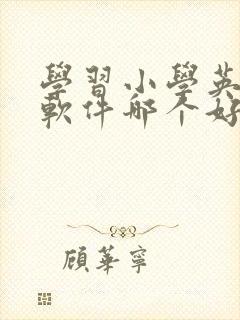 學習小學英
軟件哪个好
顧華寧